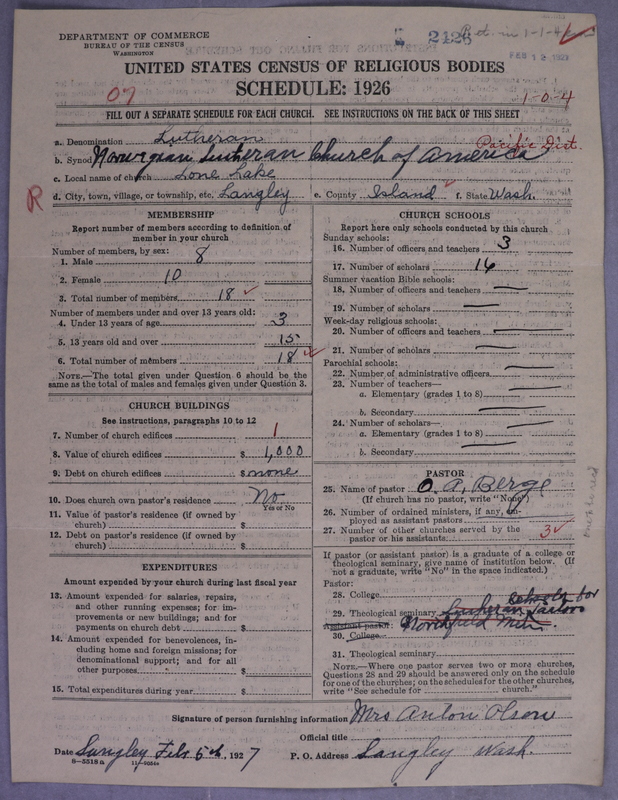 DEPARTMENT OF COMMERCE
BUREAU OF THE CENSUS
WASHINGTON
2426
Ret. in 1-1-4
FEB 12 1927
UNITED STATES CENSUS OF RELIGIOUS BODIES
SCHEDULE: 1926
07
1-0-4
FILL OUT A SEPARATE SCHEDULE FOR EACH CHURCH. SEE INSTRUCTIONS ON THE BACK OF THIS SHEET
a. Denomination Lutheran
Pacific Dist.
b. Synod Norwegian Lutheran Church of America
c. Local name of church Lone Lake
R
d. City, town, village, or township, etc. Langley e. County Island f. State Wash.
MEMBERSHIP
Report number of members according to definition of
member in your church
Number of members, by sex:
1. Male 8
2. Female 10
3. Total number of members 18
Number of members under and over 13 years old:
4. Under 13 years of age 3
5. 13 years old and over 15
6. Total number of members 18
NOTE.—The total given under Question 6 should be the
same as the total of males and females given under Question 3.
CHURCH BUILDINGS
See instructions, paragraphs 10 to 12
7. Number of church edifices 1
8. Value of church edifices $ 1,000
9. Debt on church edifices $ none
10. Does church own pastor's residence No
Yes or No
11. Value of pastor's residence (if owned by
church) $
12. Debt on pastor's residence (if owned by
church) $
EXPENDITURES
Amount expended by your church during last fiscal year
13. Amount expended for salaries, repairs,
and other running expenses; for im-
provements or new buildings; and for
payments on church debt $
14. Amount expended for benevolences, in-
cluding home and foreign missions; for
denominational support; and for all
other purposes $
15. Total expenditures during year $
CHURCH SCHOOLS
Report here only schools conducted by this church
Sunday schools:
16. Number of officers and teachers 3
17. Number of scholars 14
Summer vacation Bible schools:
18. Number of officers and teachers
19. Number of scholars
Week-day religious schools:
20. Number of officers and teachers
21. Number of scholars
Parochial schools:
22. Number of administrative officers
23. Number of teachers—
a. Elementary (grades 1 to 8)
b. Secondary
24. Number of scholars—
a. Elementary (grades 1 to 8)
b. Secondary
PASTOR
25. Name of pastor O. A. Berge
(If church has no pastor, write "None")
26. Number of ordained ministers, if any, em-
ployed as assistant pastors
27. Number of other churches served by the
pastor or his assistants: 3
If pastor (or assistant pastor) is a graduate of a college or
theological seminary, give name of institution below. (If
not a graduate, write "No" in the space indicated.)
Pastor:
28. College
School for
29. Theological seminary Lutheran Pastors
Assistant pastor: Northfield Min.
30. College
31. Theological seminary
NOTE.—Where one pastor serves two or more churches,
Questions 28 and 29 should be answered only on the schedule
for one of the churches; on the schedules for the other churches,
write "See schedule for church."
Signature of person furnishing information Mrs Anton Olson
Official title
Date Langley Feb 5th, 1927 P. O. Address Langley Wash.
8—5518a 11—9054a